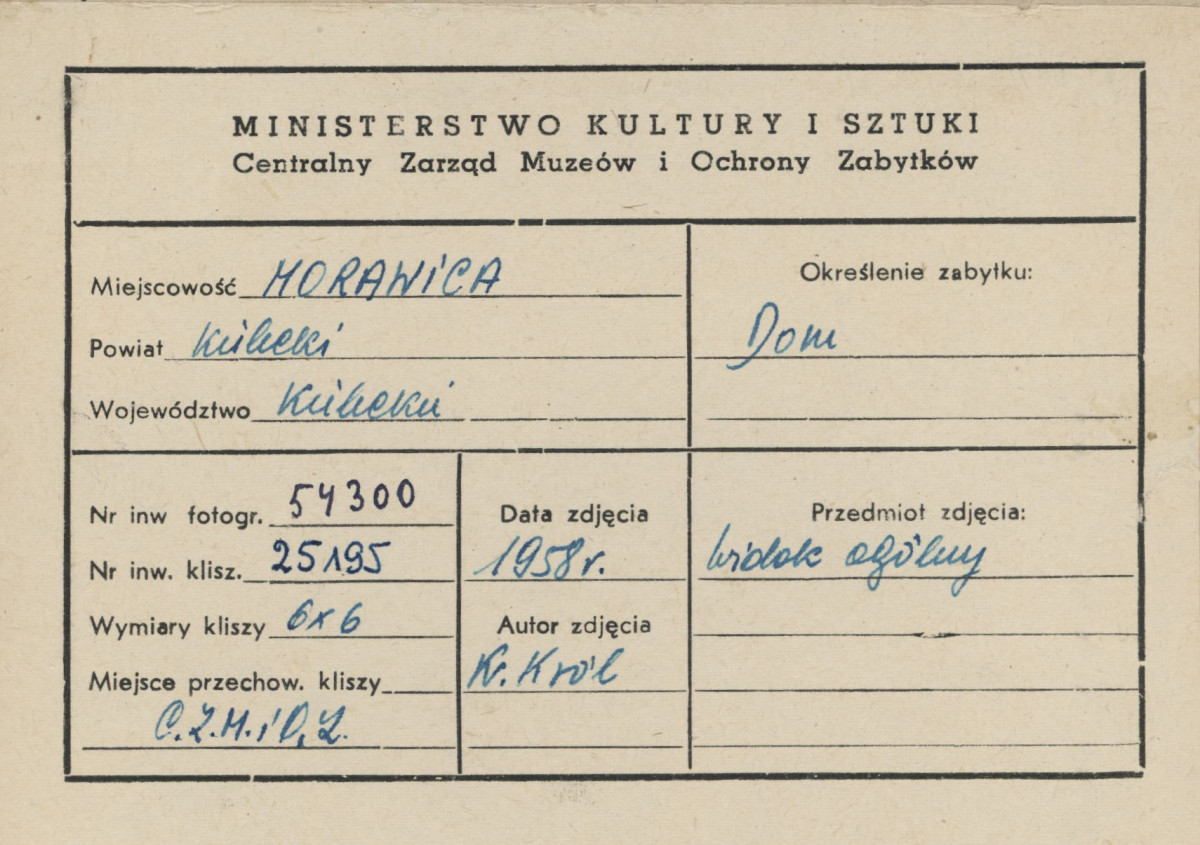 MINISTERSTWO KULTURY I SZTUKI
Centralny Zarząd Muzeów i Ochrony Zabytków
Miejscowość MORAWICA
Powiat Kielecki
Województwo Kieleckie
Określenie zabytku:
Dom
Nr inw fotogr. 54300
Nr inw. klisz. 25195
Wymiary kliszy 6x6
Miejsce przechow. kliszy
C.Z.M.i O.Z.
Data zdjęcia
1958r.
Autor zdjęcia
Kr. Król
Przedmiot zdjęcia:
widok ogólny